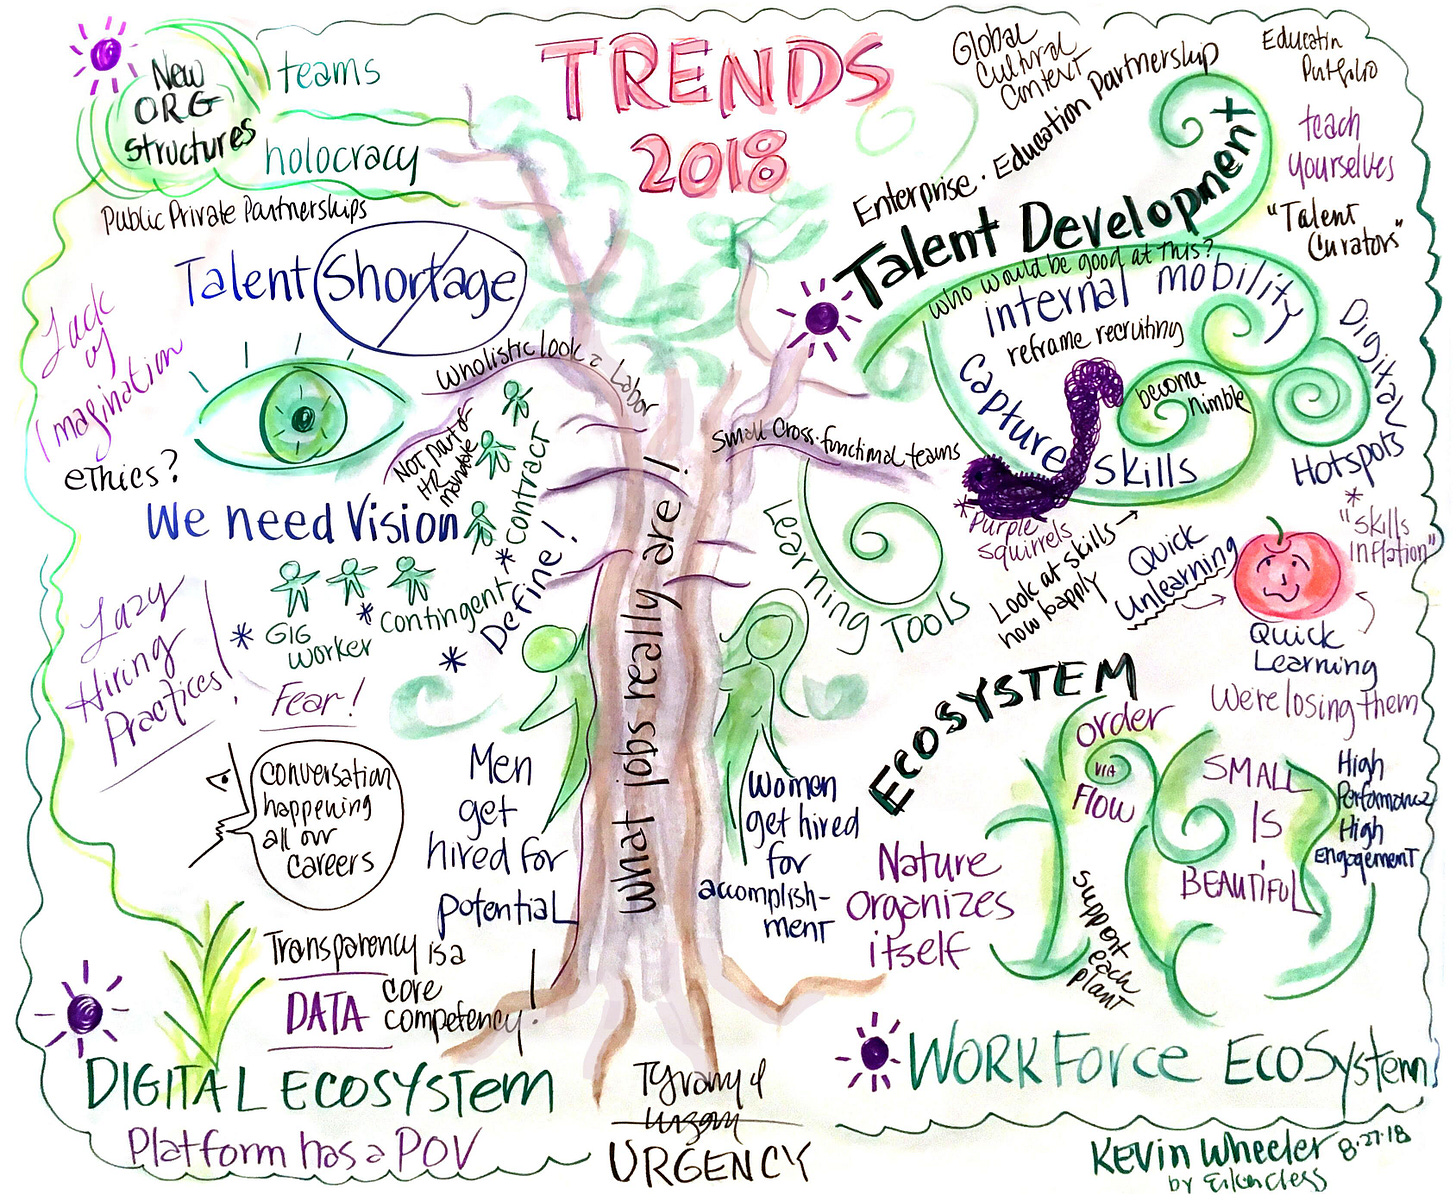 TRENDS
2018
New
ORG
Structures
teams
holocracy
Public Private Partnerships
Talent Shortage
Lack
of
Imagination
ethics?
We need Vision
Wholistic Look @ Labor
NOT part of
HR
mandate
* contract
* Contingent
* GIG
worker
* Define!
Lazy
Hiring
Practices!
Fear!
Conversation
happening
all our
careers
Men
get
hired for
potential
Transparency is a
DATA
core
competency!
DIGITAL ECOSYSTEM
Platform has a POV
What jobs really are!
Tyranny of
URGENCY
Global
Cultural
Context
Enterprise · Education Partnership
Educatin
Putfolio
teach
yourselves
"Talent
Curators"
Talent Development
who would be good at this?
internal mobility
reframe recruiting
Capture Skills
become
nimble
Digital
Hotspots
*
"Skills
Inflation"
Small Cross-functional teams
* Purple
Squirrels
Learning Tools
Look at skills →
how happly
Quick
Unlearning
Quick
Learning
We're losing them
Women
get hired
for
accomplish-
ment
ECOSYSTEM
order
VIA
FLOW
Nature
organizes
itself
support
each
plant
SMALL
IS
BEAUTIFUL
High
Performance
High
Engagement
WORKForce EcoSystem
Kevin Wheeler 8·27·18
by